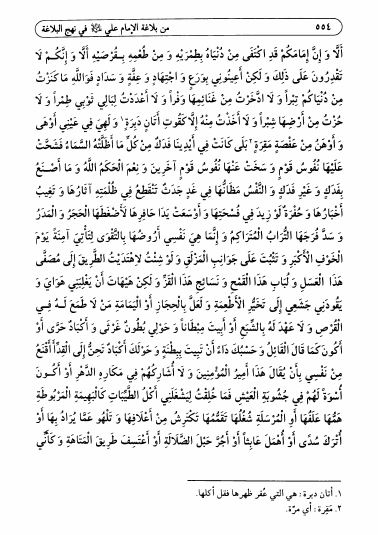 ٥٥٤ من بلاغة الإمام علي في نهج البلاغة
أَلَا وَ إِنَّ إِمَامَكُمْ قَدِ اكْتَفَى مِنْ دُنْيَاهُ بِطِمْرَيْهِ وَ مِنْ طُعْمِهِ بِقُرْصَيْهِ أَلَا وَ إِنَّكُمْ لَا
تَقْدِرُونَ عَلَى ذَلِكَ وَ لَكِنْ أَعِينُونِي بِوَرَعٍ وَ اجْتِهَادٍ وَ عِفَّةٍ وَ سَدَادٍ فَوَاللَّهِ مَا كَنَزْتُ
مِنْ دُنْيَاكُمْ تِبْراً وَ لَا ادَّخَرْتُ مِنْ غَنَائِمِهَا وَفْراً وَ لَا أَعْدَدْتُ لِبَالِي ثَوْبِي طِمْراً وَ لَا
حُزْتُ مِنْ أَرْضِهَا شِبْراً وَ لَا أَخَذْتُ مِنْهُ إِلَّا كَقُوتِ أَتَانٍ دَبِرَةٍ١ وَ لَهِيَ فِي عَيْنِي أَوْهَى
وَ أَوْهَنُ مِنْ عَفْصَةٍ مَقِرَةٍ٢ بَلَى كَانَتْ فِي أَيْدِينَا فَدَكٌ مِنْ كُلِّ مَا أَظَلَّتْهُ السَّمَاءُ فَشَحَّتْ
عَلَيْهَا نُفُوسُ قَوْمٍ وَ سَخَتْ عَنْهَا نُفُوسُ قَوْمٍ آخَرِينَ وَ نِعْمَ الْحَكَمُ اللَّهُ وَ مَا أَصْنَعُ
بِفَدَكٍ وَ غَيْرِ فَدَكٍ وَ النَّفْسُ مَظَانُّهَا فِي غَدٍ جَدَثٌ تَنْقَطِعُ فِي ظُلْمَتِهِ آثَارُهَا وَ تَغِيبُ
أَخْبَارُهَا وَ حُفْرَةٌ لَوْ زِيدَ فِي فُسْحَتِهَا وَ أَوْسَعَتْ يَدَا حَافِرِهَا لَأَضْغَطَهَا الْحَجَرُ وَ الْمَدَرُ
وَ سَدَّ فُرَجَهَا التُّرَابُ الْمُتَرَاكِمُ وَ إِنَّمَا هِيَ نَفْسِي أَرُوضُهَا بِالتَّقْوَى لِتَأْتِيَ آمِنَةً يَوْمَ
الْخَوْفِ الْأَكْبَرِ وَ تَثْبُتَ عَلَى جَوَانِبِ الْمَزْلَقِ وَ لَوْ شِئْتُ لَاهْتَدَيْتُ الطَّرِيقَ إِلَى مُصَفَّى
هَذَا الْعَسَلِ وَ لُبَابِ هَذَا الْقَمْحِ وَ نَسَائِجِ هَذَا الْقَزِّ وَ لَكِنْ هَيْهَاتَ أَنْ يَغْلِبَنِي هَوَايَ وَ
يَقُودَنِي جَشَعِي إِلَى تَخَيُّرِ الْأَطْعِمَةِ وَ لَعَلَّ بِالْحِجَازِ أَوِ الْيَمَامَةِ مَنْ لَا طَمَعَ لَهُ فِي
الْقُرْصِ وَ لَا عَهْدَ لَهُ بِالشِّبَعِ أَوْ أَبِيتَ مِبْطَاناً وَ حَوْلِي بُطُونٌ غَرْثَى وَ أَكْبَادٌ حَرَّى أَوْ
أَكُونَ كَمَا قَالَ الْقَائِلُ وَ حَسْبُكَ دَاءً أَنْ تَبِيتَ بِبِطْنَةٍ وَ حَوْلَكَ أَكْبَادٌ تَحِنُّ إِلَى الْقِدِّ أَأَقْنَعُ
مِنْ نَفْسِي بِأَنْ يُقَالَ هَذَا أَمِيرُ الْمُؤْمِنِينَ وَ لَا أُشَارِكُهُمْ فِي مَكَارِهِ الدَّهْرِ أَوْ أَكُونَ
أُسْوَةً لَهُمْ فِي جُشُوبَةِ الْعَيْشِ فَمَا خُلِقْتُ لِيَشْغَلَنِي أَكْلُ الطَّيِّبَاتِ كَالْبَهِيمَةِ الْمَرْبُوطَةِ
هَمُّهَا عَلَفُهَا أَوِ الْمُرْسَلَةِ شُغُلُهَا تَقَمُّمُهَا تَكْتَرِشُ مِنْ أَعْلَافِهَا وَ تَلْهُو عَمَّا يُرَادُ بِهَا أَوْ
أُتْرَكَ سُدًى أَوْ أُهْمَلَ عَابِثاً أَوْ أَجُرَّ حَبْلَ الضَّلَالَةِ أَوْ أَعْتَسِفَ طَرِيقَ الْمَتَاهَةِ وَ كَأَنِّي
١. أتان دبرة : هي التي عُقر ظهرها فقل أكلها.
٢. مَقِرة : أي مرّة.